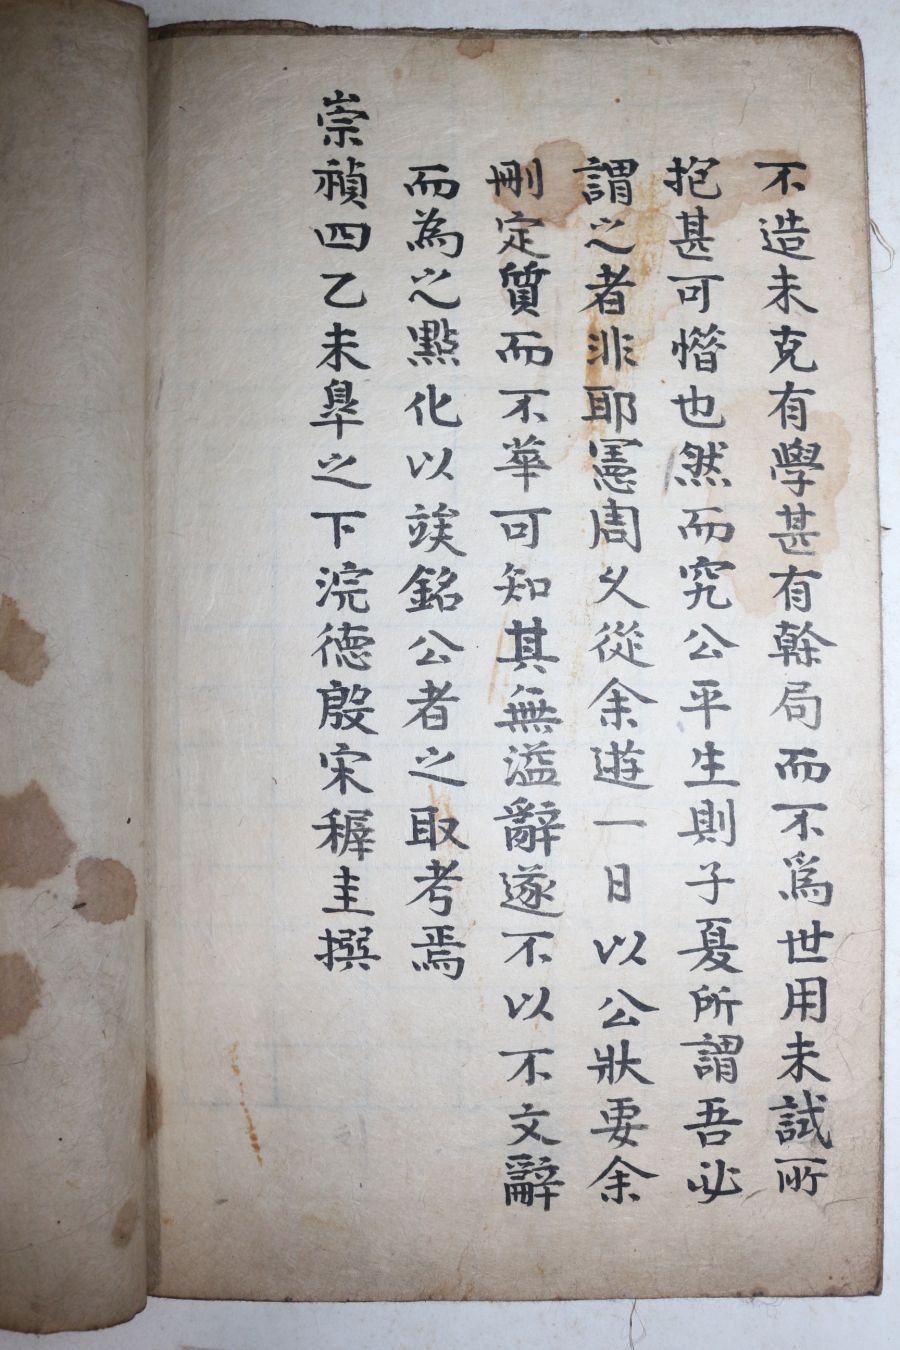 不造未克有學甚有幹局而不爲世用未試所
抱甚可惜也然而究公平生則子夏所謂吾必
謂之者非耶憲周久從余遊一日以公狀要余
刪定質而不華可知其無溢辭遂不以不文辭
而為之點化以竢銘公者之取考焉
崇禎四乙未皐之下浣德殷宋穉圭撰